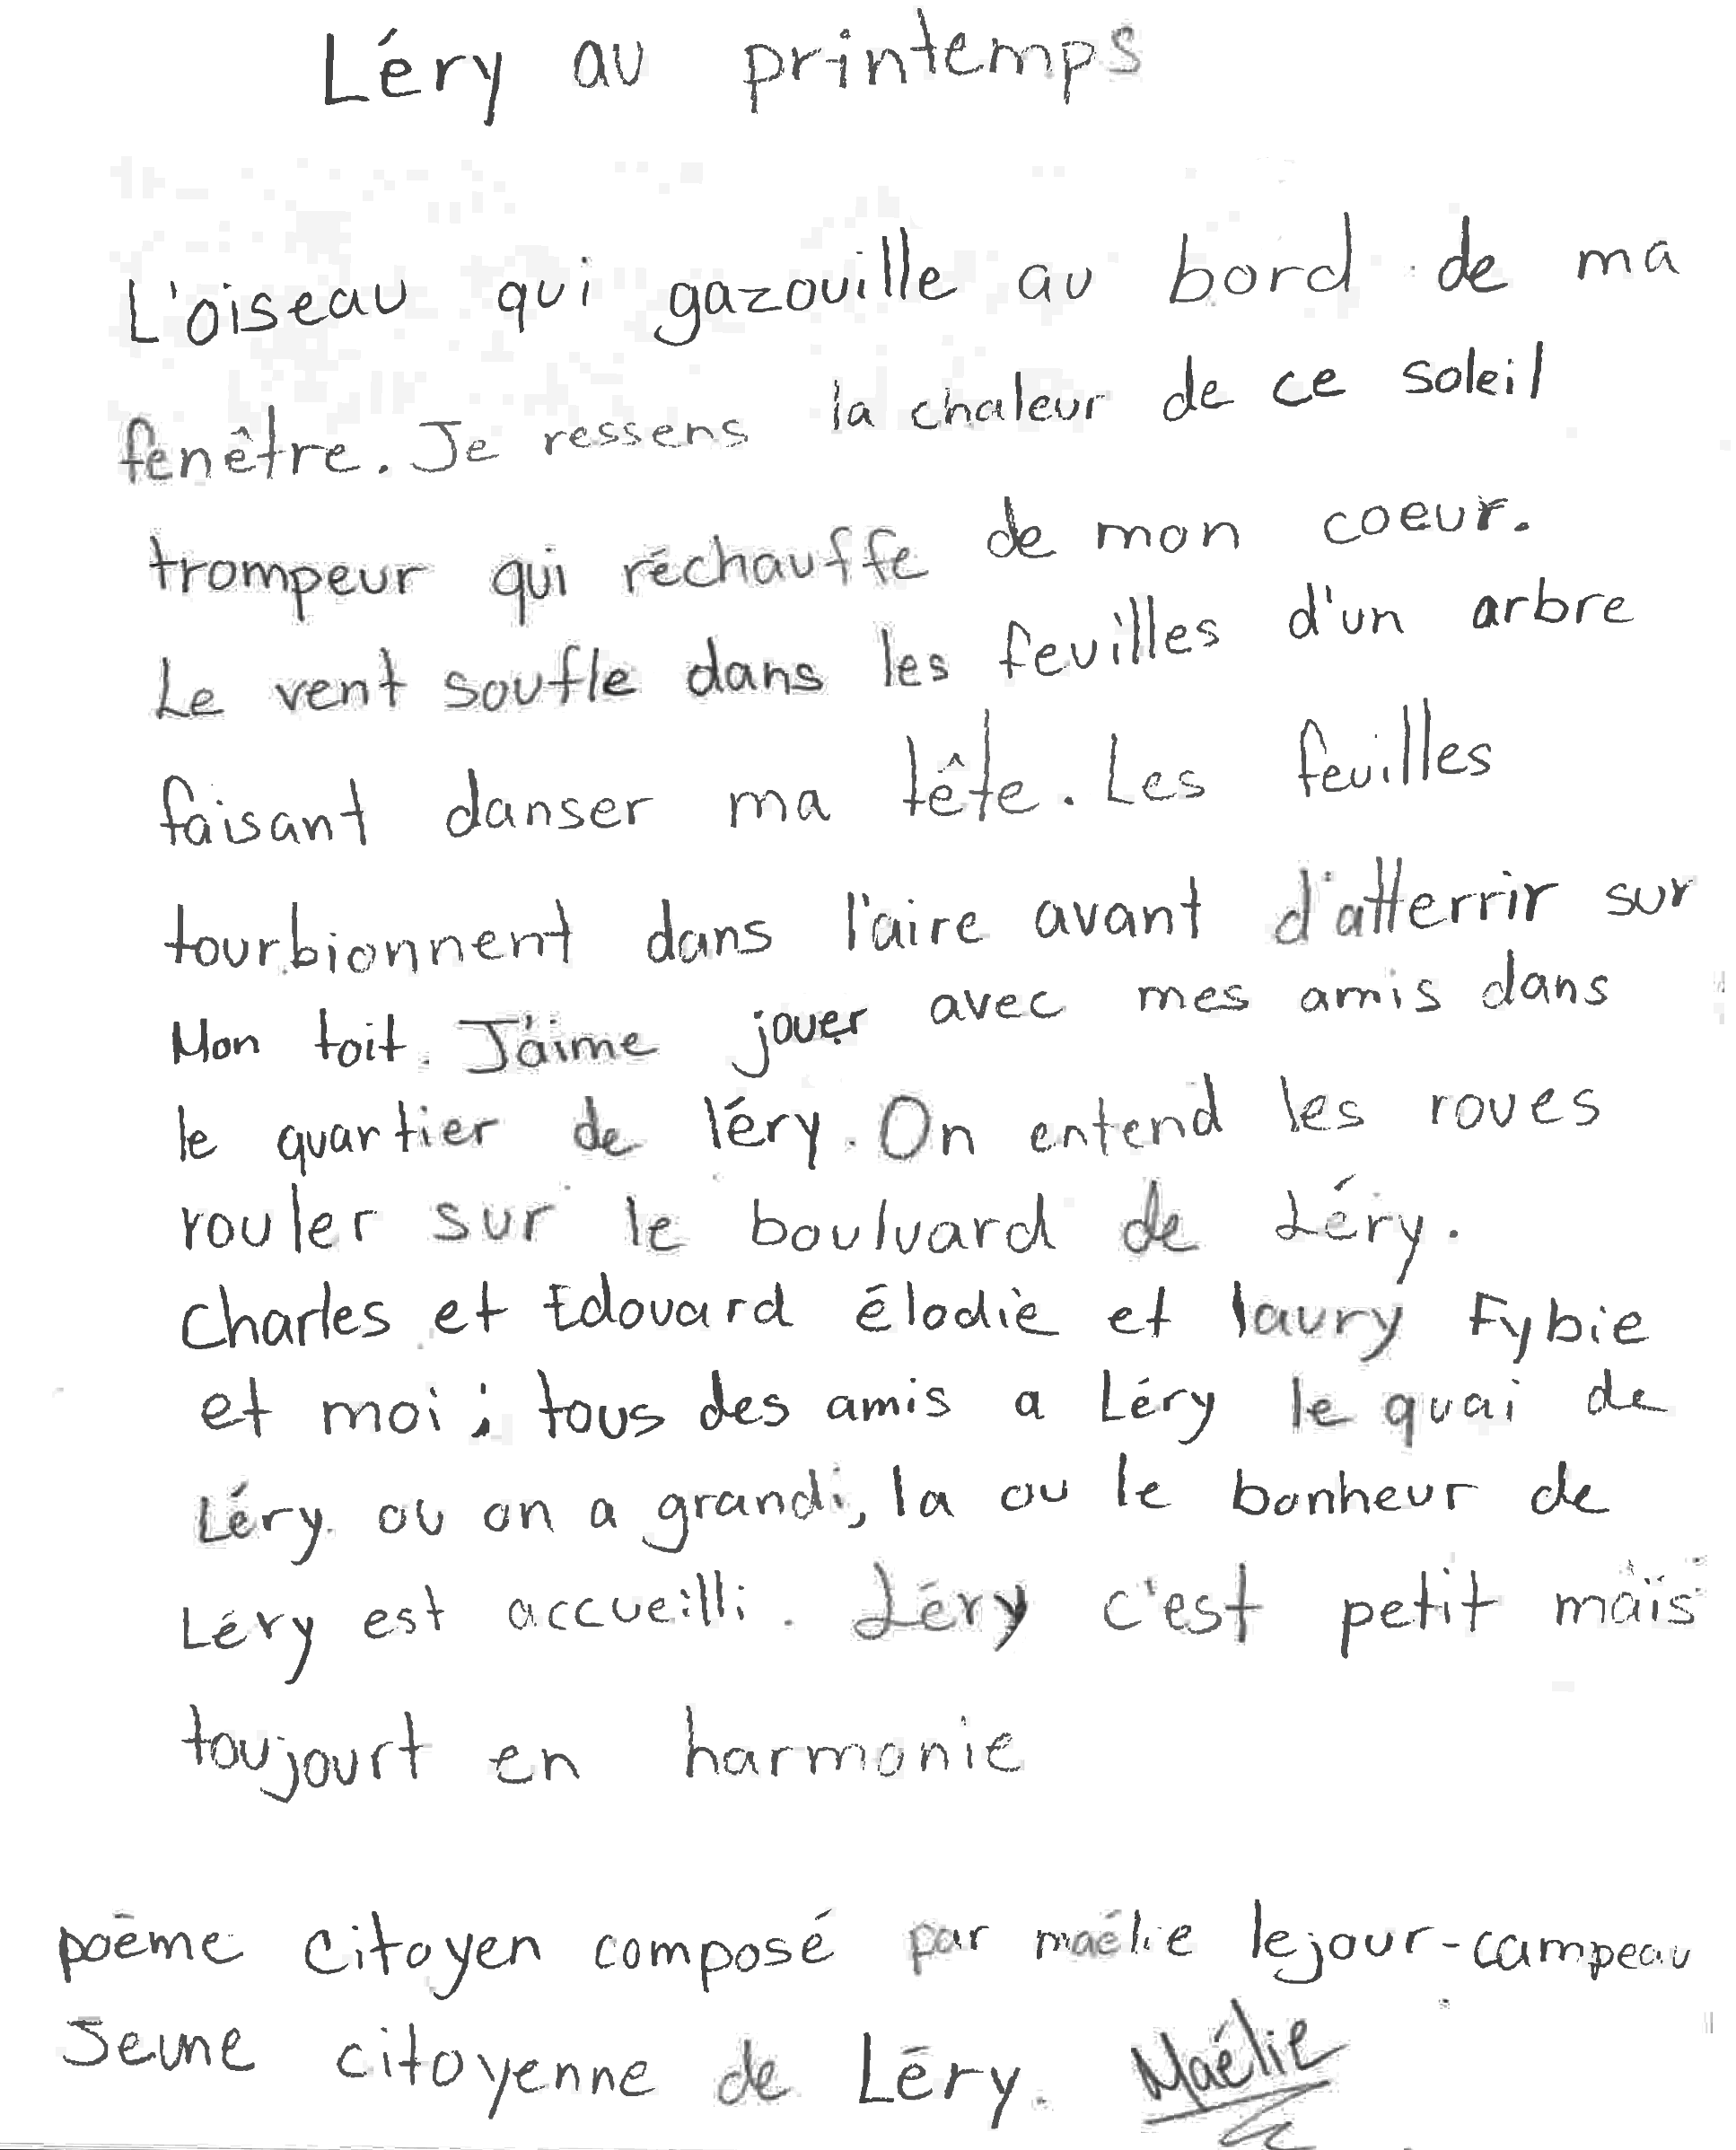 Léry au printemps
L'oiseau qui gazouille au bord de ma
fenêtre. Je ressens la chaleur de ce soleil
trompeur qui réchauffe de mon coeur.
Le vent soufle dans les feuilles d'un arbre
faisant danser ma tête. Les feuilles
tourbionnent dans l'aire avant d'atterrir sur
Mon toit. J'aime jouer avec mes amis dans
le quartier de léry. On entend les roues
rouler sur le boulvard de Léry.
Charles et Edouard élodie et laury Fybie
et moi; tous des amis a Léry le quai de
Léry ou on a grandi, la ou le bonheur de
Léry est accueilli. Léry c'est petit mais
toujourt en harmonie
poème citoyen composé par maélie lejour-campeau
Jeune citoyenne de Léry. Maélie